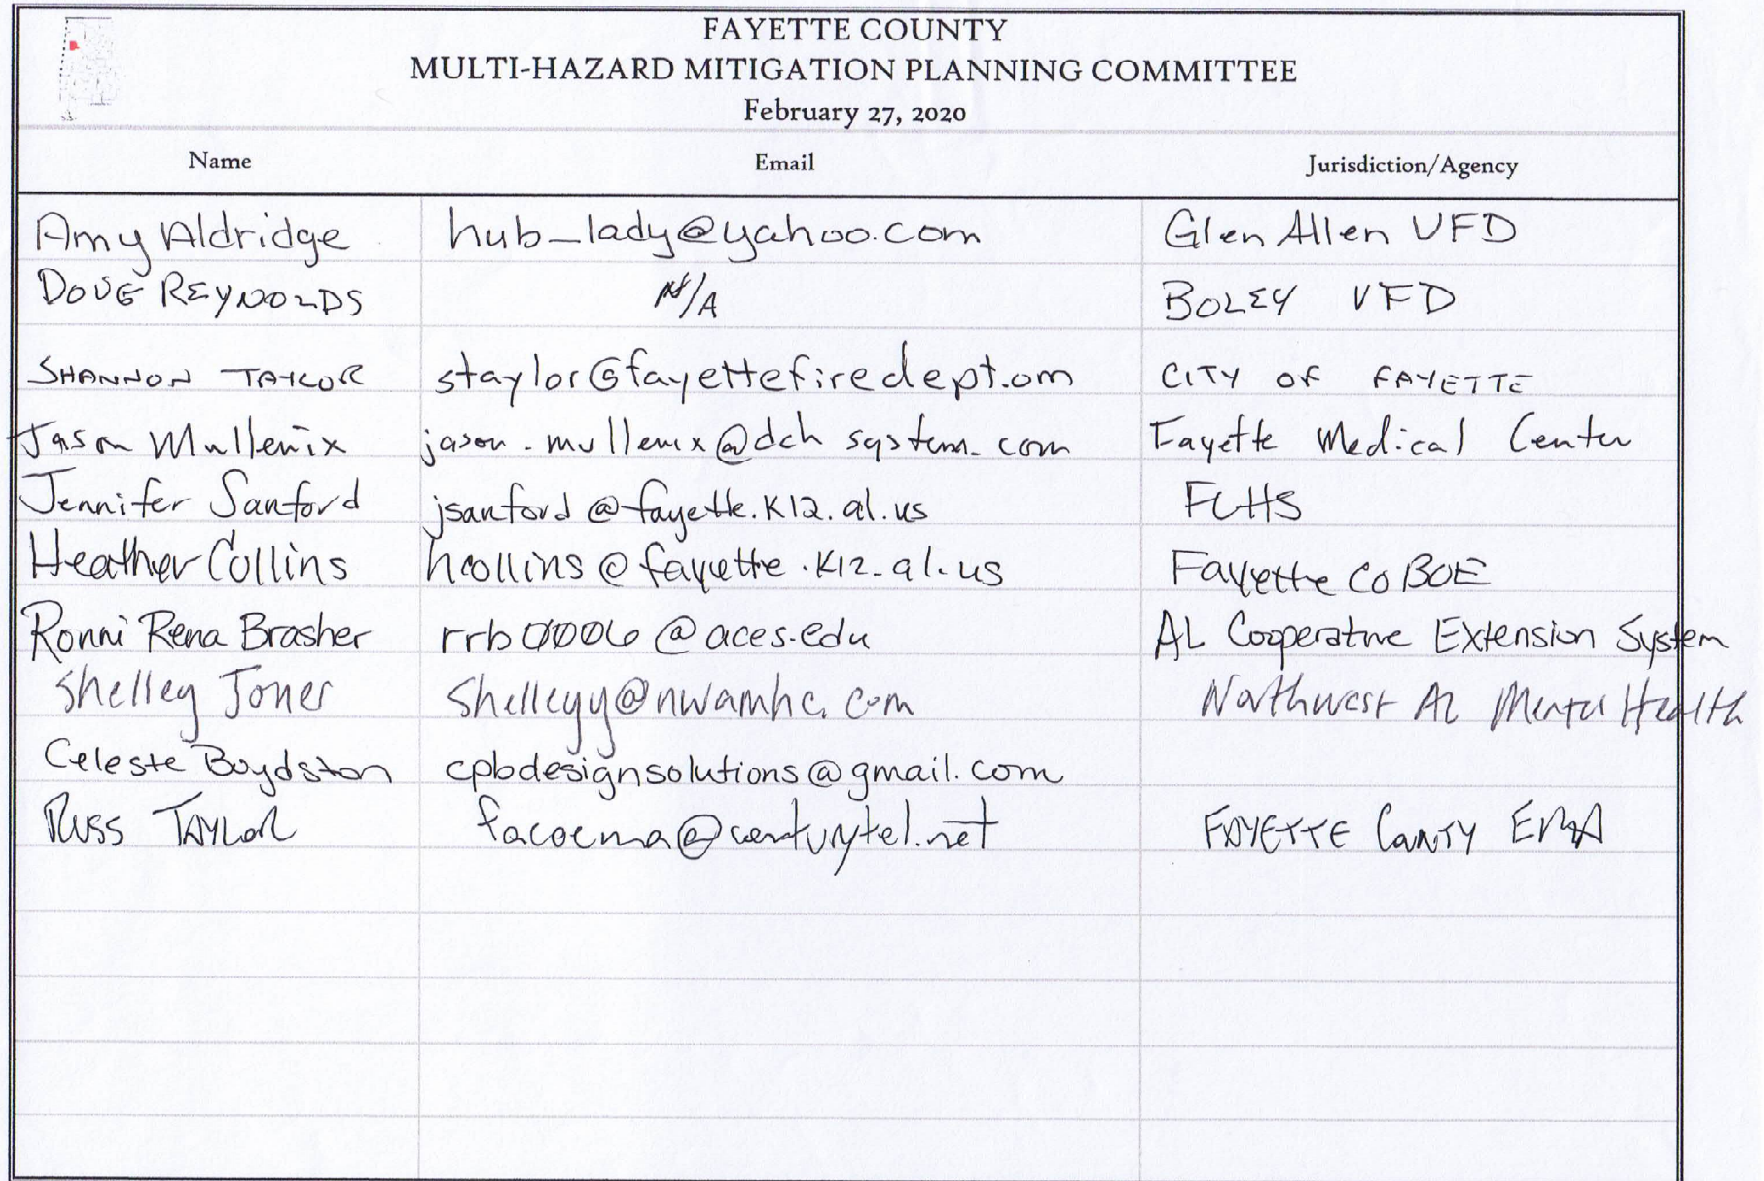 FAYETTE COUNTY
MULTI-HAZARD MITIGATION PLANNING COMMITTEE
February 27, 2020
Name Email Jurisdiction/Agency
Amy Aldridge hub_lady@yahoo.com Glen Allen VFD
DOUG REYNOLDS N/A BOLEY VFD
SHANNON TAYLOR staylor@fayettefiredept.om CITY OF FAYETTE
Jason Mullenix jason.mullenix@dchsystem.com Fayette Medical Center
Jennifer Sanford jsanford@fayette.K12.al.us FCHS
Heather Collins hcollins@fayette.K12.al.us Fayette Co BOE
Ronni Rena Brasher rrb0006@aces.edu AL Cooperative Extension System
Shelley Jones Shelleyy@nwamhc.com Northwest AL Mental Health
Celeste Boydston cpbdesignsolutions@gmail.com
RUSS TAYLOR facoema@centurytel.net FAYETTE COUNTY EMA